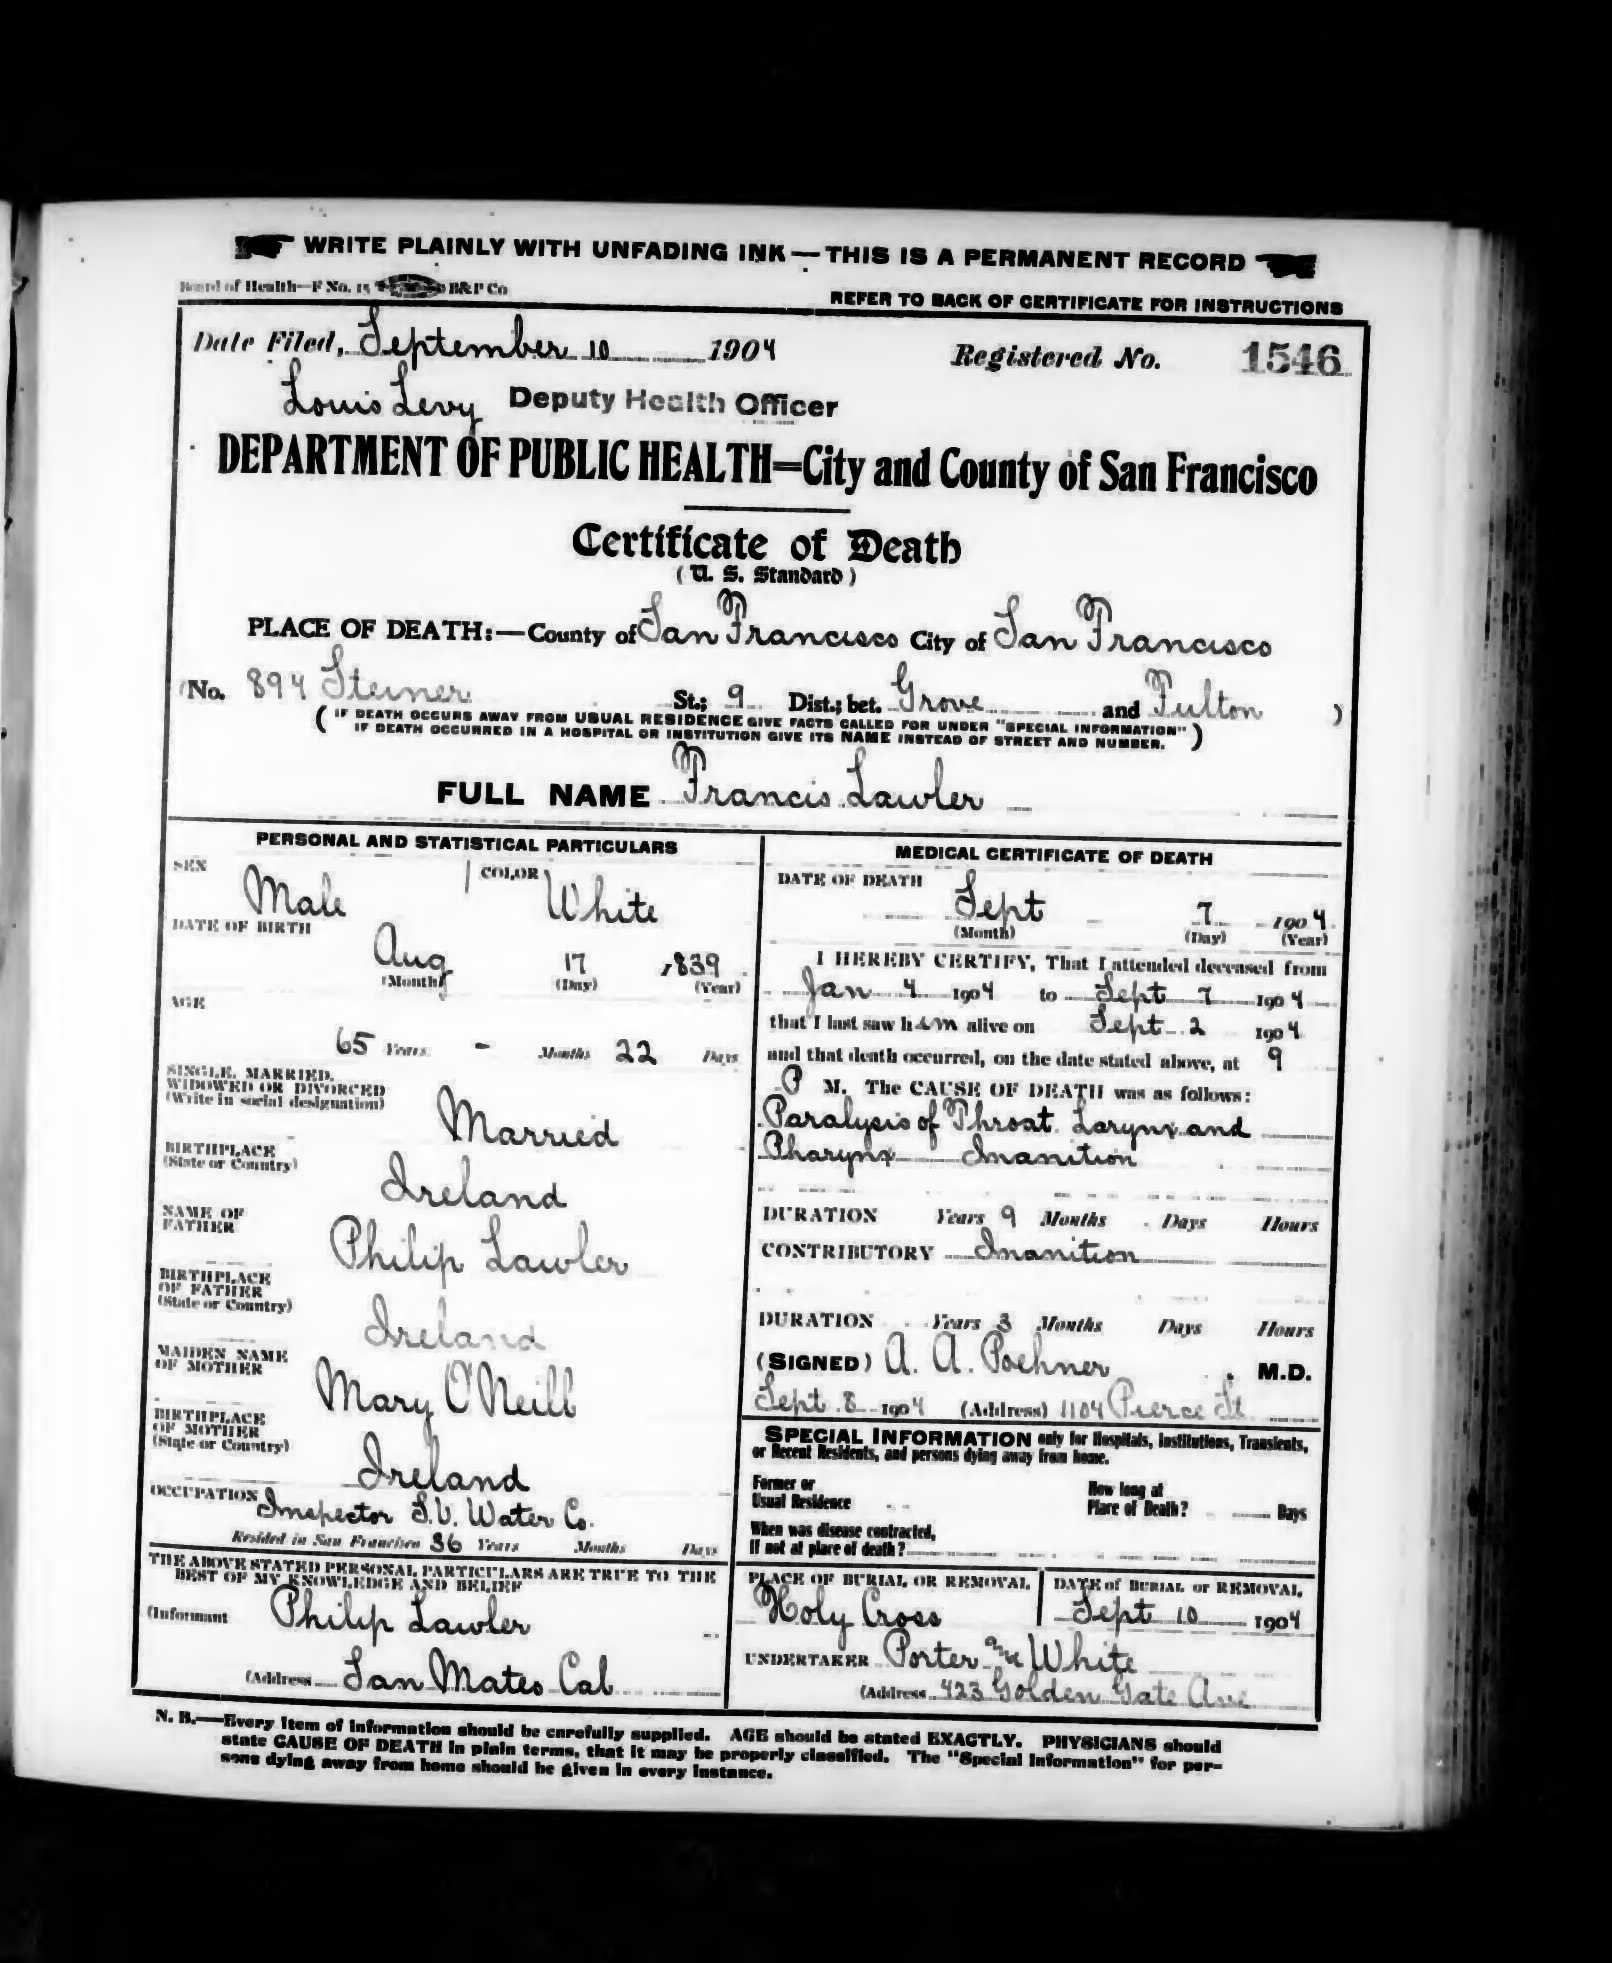 WRITE PLAINLY WITH UNFADING INK — THIS IS A PERMANENT RECORD
Board of Health—F No. 15 B&P Co
REFER TO BACK OF CERTIFICATE FOR INSTRUCTIONS
Date Filed, September 10 1904 Registered No. 1546
Louis Levy Deputy Health Officer
DEPARTMENT OF PUBLIC HEALTH=City and County of San Francisco
Certificate of Death
(U. S. Standard)
PLACE OF DEATH:—County of San Francisco City of San Francisco
(No. 894 Steiner St.; 9 Dist.; bet. Grove and Fulton )
( IF DEATH OCCURS AWAY FROM USUAL RESIDENCE GIVE FACTS CALLED FOR UNDER "SPECIAL INFORMATION"
IF DEATH OCCURRED IN A HOSPITAL OR INSTITUTION GIVE ITS NAME INSTEAD OF STREET AND NUMBER. )
FULL NAME Francis Lawler
PERSONAL AND STATISTICAL PARTICULARS
SEX Male COLOR White
DATE OF BIRTH
Aug 17 1839
(Month) (Day) (Year)
AGE
65 Years - Months 22 Days
SINGLE, MARRIED,
WIDOWED OR DIVORCED
(Write in social designation) Married
BIRTHPLACE
(State or Country) Ireland
NAME OF
FATHER Philip Lawler
BIRTHPLACE
OF FATHER
(State or Country) Ireland
MAIDEN NAME
OF MOTHER Mary O'Neill
BIRTHPLACE
OF MOTHER
(State or Country) Ireland
OCCUPATION Inspector S.V. Water Co.
Resided in San Francisco 36 Years Months Days
THE ABOVE STATED PERSONAL PARTICULARS ARE TRUE TO THE
BEST OF MY KNOWLEDGE AND BELIEF
(Informant Philip Lawler
(Address San Mateo Cal
MEDICAL CERTIFICATE OF DEATH
DATE OF DEATH
Sept 7 1904
(Month) (Day) (Year)
I HEREBY CERTIFY, That I attended deceased from
Jan 4 1904 to Sept 7 1904
that I last saw him alive on Sept 2 1904
and that death occurred, on the date stated above, at 9
P M. The CAUSE OF DEATH was as follows:
Paralysis of Throat Larynx and
Pharynx Inanition
DURATION Years 9 Months Days Hours
CONTRIBUTORY Inanition
DURATION Years 3 Months Days Hours
(SIGNED) A. A. Poehner M.D.
Sept 8 1904 (Address) 1104 Pierce St
SPECIAL INFORMATION only for Hospitals, Institutions, Transients,
or Recent Residents, and persons dying away from home.
Former or
Usual Residence
How long at
Place of Death? Days
When was disease contracted,
If not at place of death?
PLACE OF BURIAL OR REMOVAL
Holy Cross
DATE of BURIAL or REMOVAL
Sept 10 1904
UNDERTAKER Porter and White
(Address 423 Golden Gate Ave
N. B.—Every item of information should be carefully supplied. AGE should be stated EXACTLY. PHYSICIANS should
state CAUSE OF DEATH in plain terms, that it may be properly classified. The "Special Information" for per-
sons dying away from home should be given in every instance.